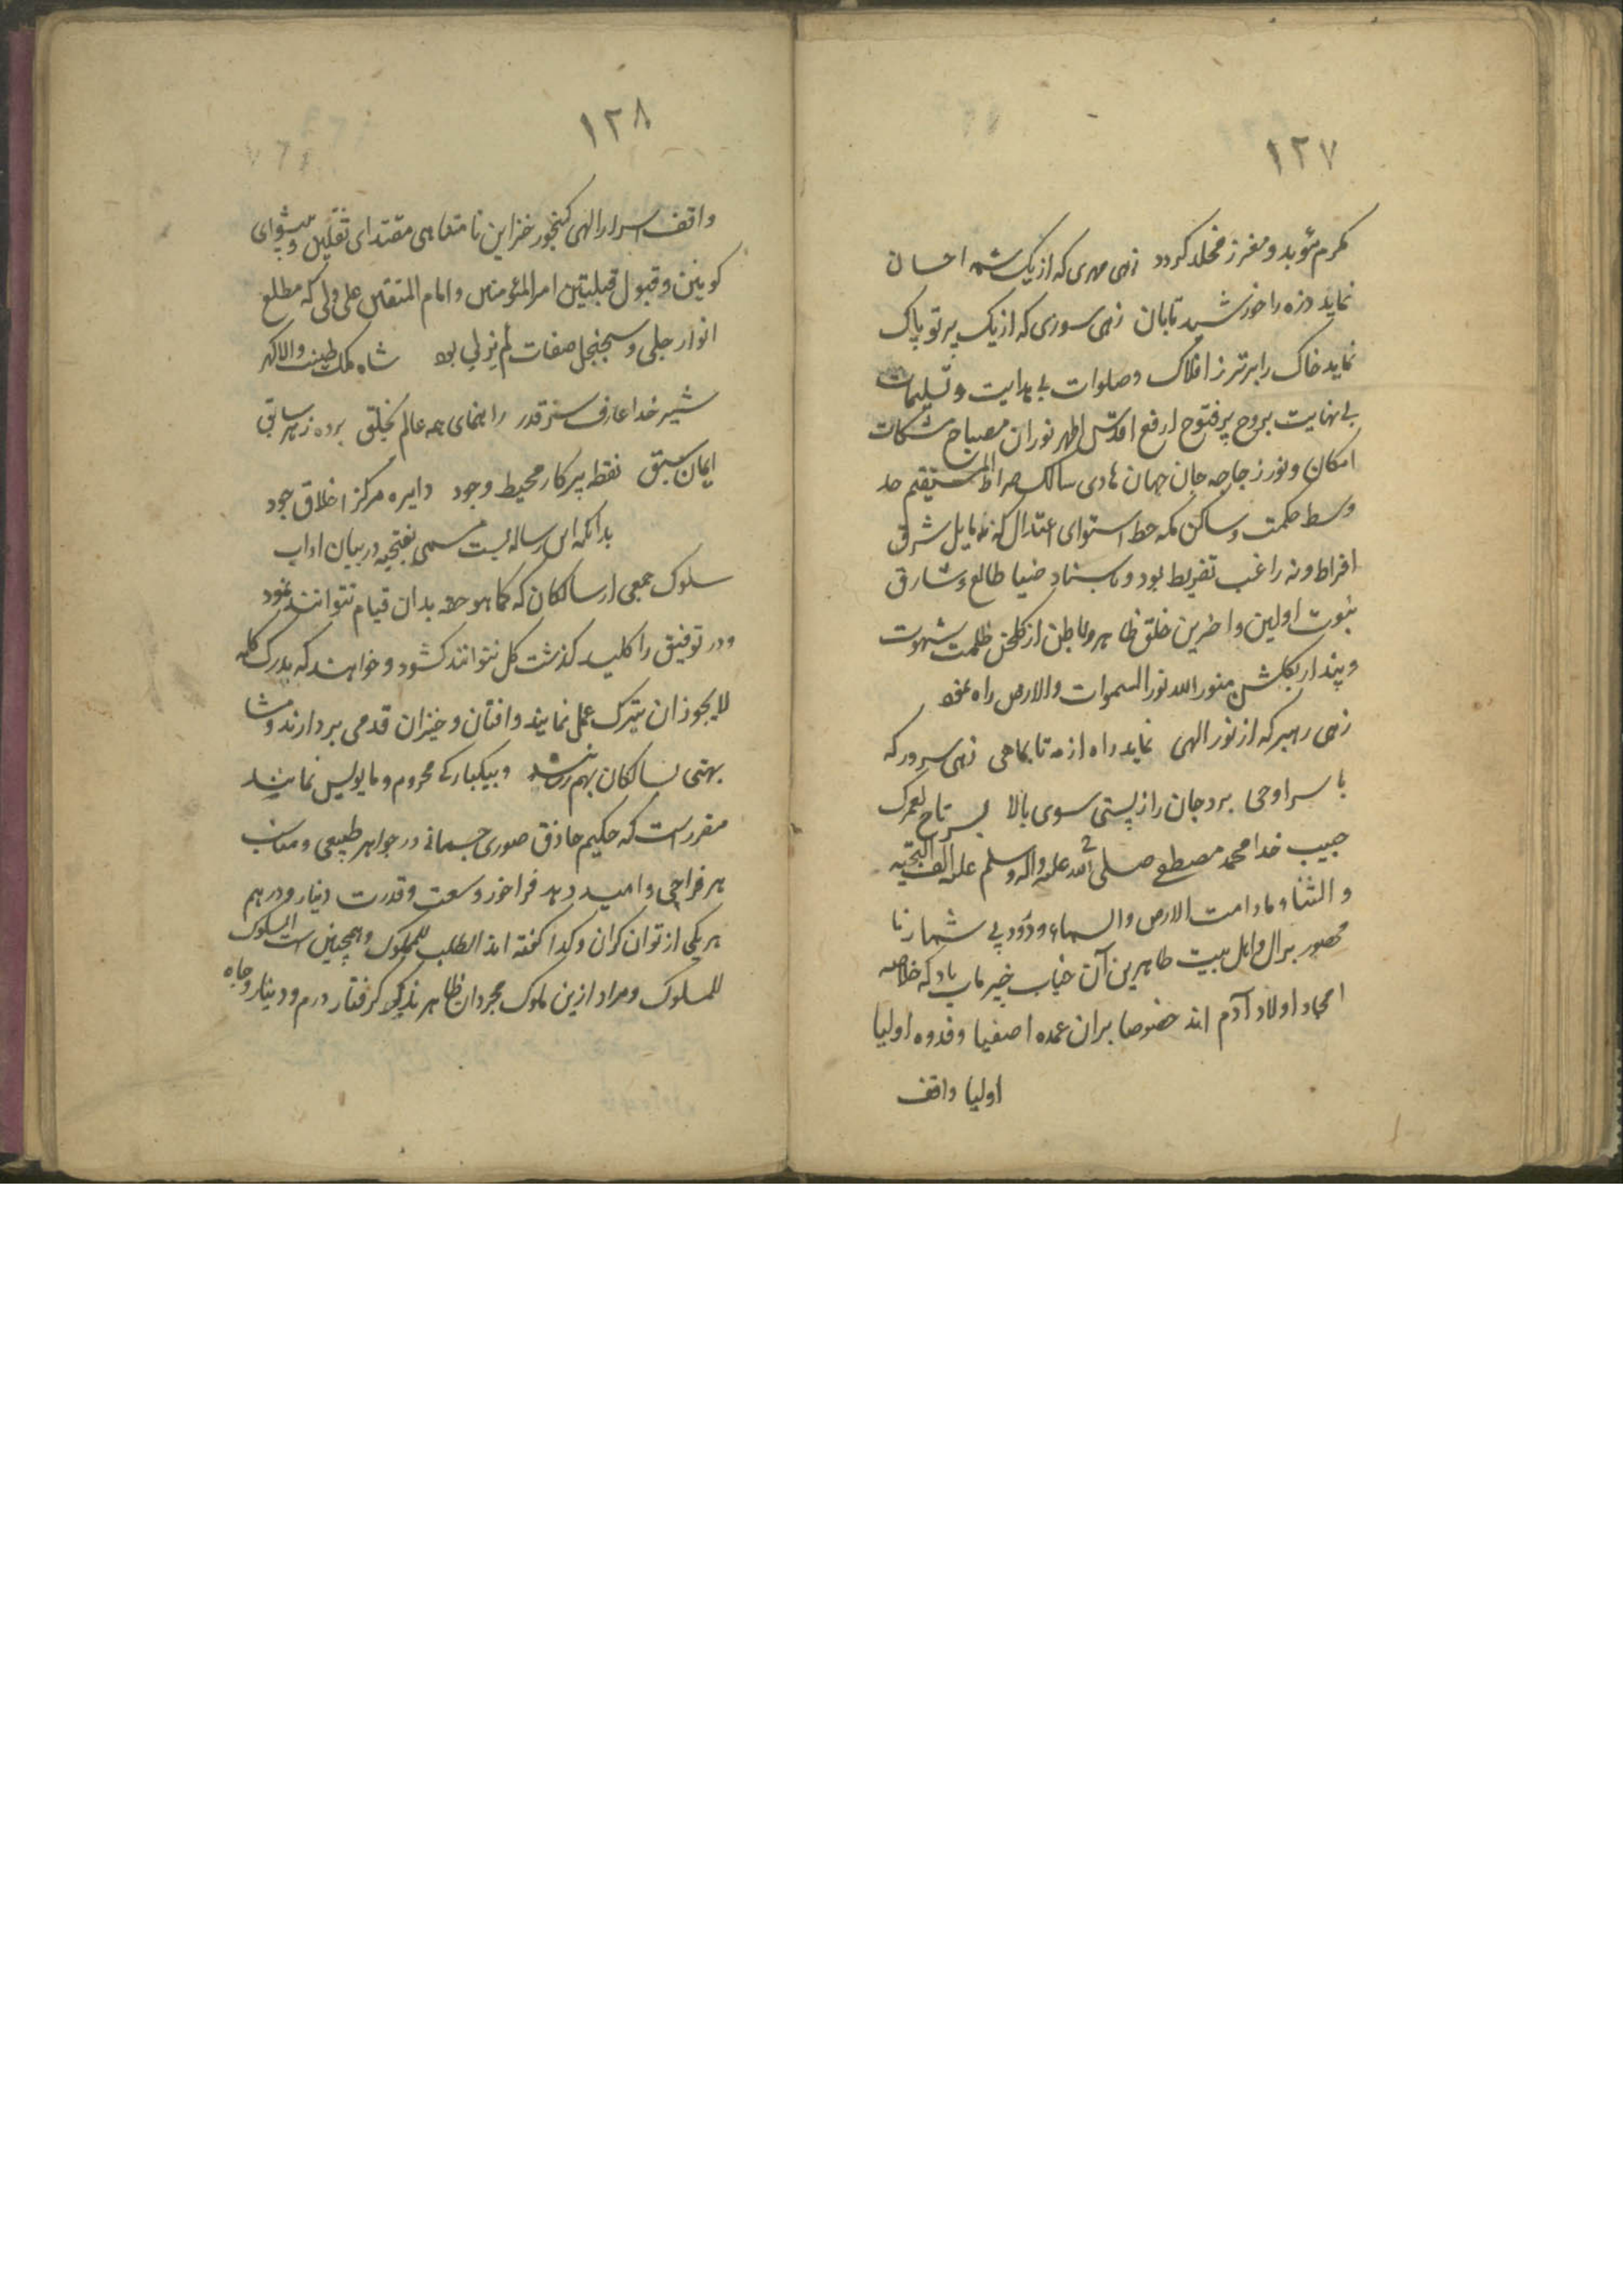 ١٢٧
مکرم مؤبد و معزز مخلد کردد زهی مهری که از یک شمه احسان
نماید ذره را خورشید تابان زهی سوری که از یک پرتو پاک
نماید خاک را برتر ز افلاک و صلوات بی بدایت و تسلیمات
بی نهایت بروح پرفتوح ارفع اقدس اطهر نوران مصباح مشکات
امکان و نور زجاجه جان جهان هادی سالک صراط المستقیم حد
وسط حکمت و ساکن مکه خط استوای اعتدال که نه مایل شرق
افراط و نه راغب تفریط بود و باسناد ضیا طالع و شارق
نبوت اولین و اخرین خلق ظاهر و باطن از کلخن ظلمت شهوت
و پندار بکلشن منور الله نور السموات والارض راه نمود
زهی رهبر که از نور الهی نماید راه از مه تا بماهی زهی سرور که
با سر اوحی برد جان را ز پستی سوی بالا بسر تاج لعمرک
حبیب خدا محمد مصطفی صلی الله علیه واله وسلم علیه الف التحیه
و الثناء مادامت الارض والسماء و درود بی شمار نا
محصور بر ال و اهل بیت طاهرین آن جناب خیر ماب باد که خلاصه
امجاد اولاد آدم اند خصوصا بران عمده اصفیا و قدوه اولیا
اولیا واقف
١٢٨
واقف اسرار الهی کنجور خزاین نا متناهی مقتدای ثقلین و پیشوای
کونین و قبول قبلتین امیر المؤمنین و امام المتقین علی ولی که مطلع
انوار جلی و سجنجل صفات لم یزلی بود شاه ملک طینت والا کهر
شیر خدا عارف سر قدر راهنمای همه عالم بخلق برده ز هر سابق
ایمان سبق نقطه پرکار محیط وجود دایره مرکز اخلاق جود
بدانکه این رساله ایست مسمی بفتحیه در بیان اداب
سلوک جمعی از سالکان که کما هو حقه بدان قیام نتوانند نمود
و در توفیق را کلید کذشت کل نتوانند کشود و خواهند که یدرک کله
لا یجوز ان یترک عمل نمایند و افتان و خیزان قدمی بردارند و مشا
بهتی بسالکان بهم رسانند و بیکبارکی محروم و مایوس نمانند
مقرر است که حکیم حاذق صوری جسمانی در جواهر طبیعی و مناسب
هر مزاجی را امید دهد فراخور وسعت و قدرت دینار و درهم
هر یکی از توان کران و کدا کفته اند الطلب للملوک و همچنین است السلوک
للملوک و مراد ازین ملوک مجردان ظاهرند که کرفتار درم و دینار و جاه